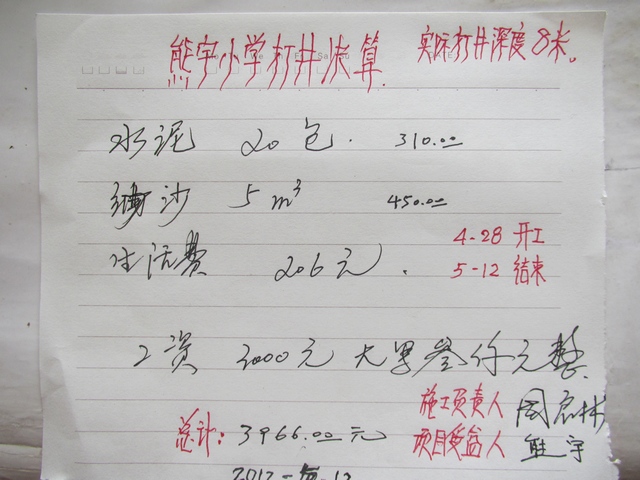 熊宇小学打井决算 实际打井深度8米。
水泥 20包. 310.00
沙 5m³ 450.00
4-28 开工
生活费 206元.
5-12 结束
工资 3000元 大写叁仟元整
施工负责人 周
总计: 3966.00元
项目受益人 熊宇